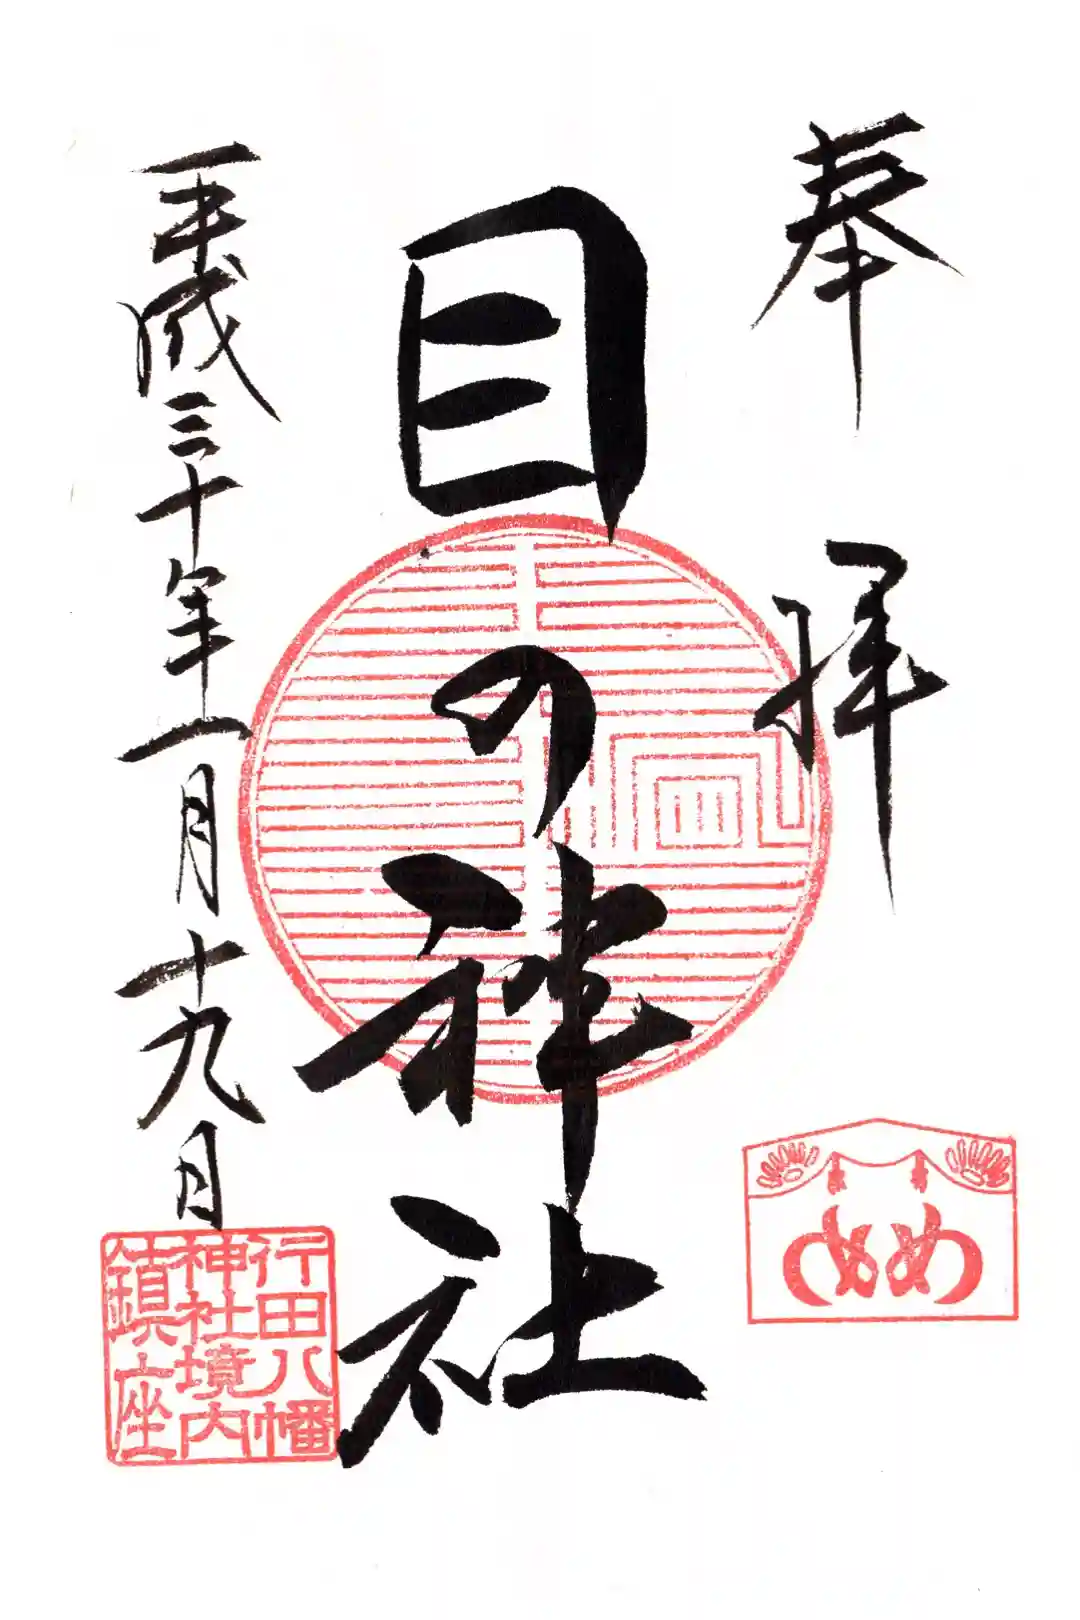 奉拝
目の神社
平成三十年一月十九日
行田八幡
神社境内
鎮座
め め